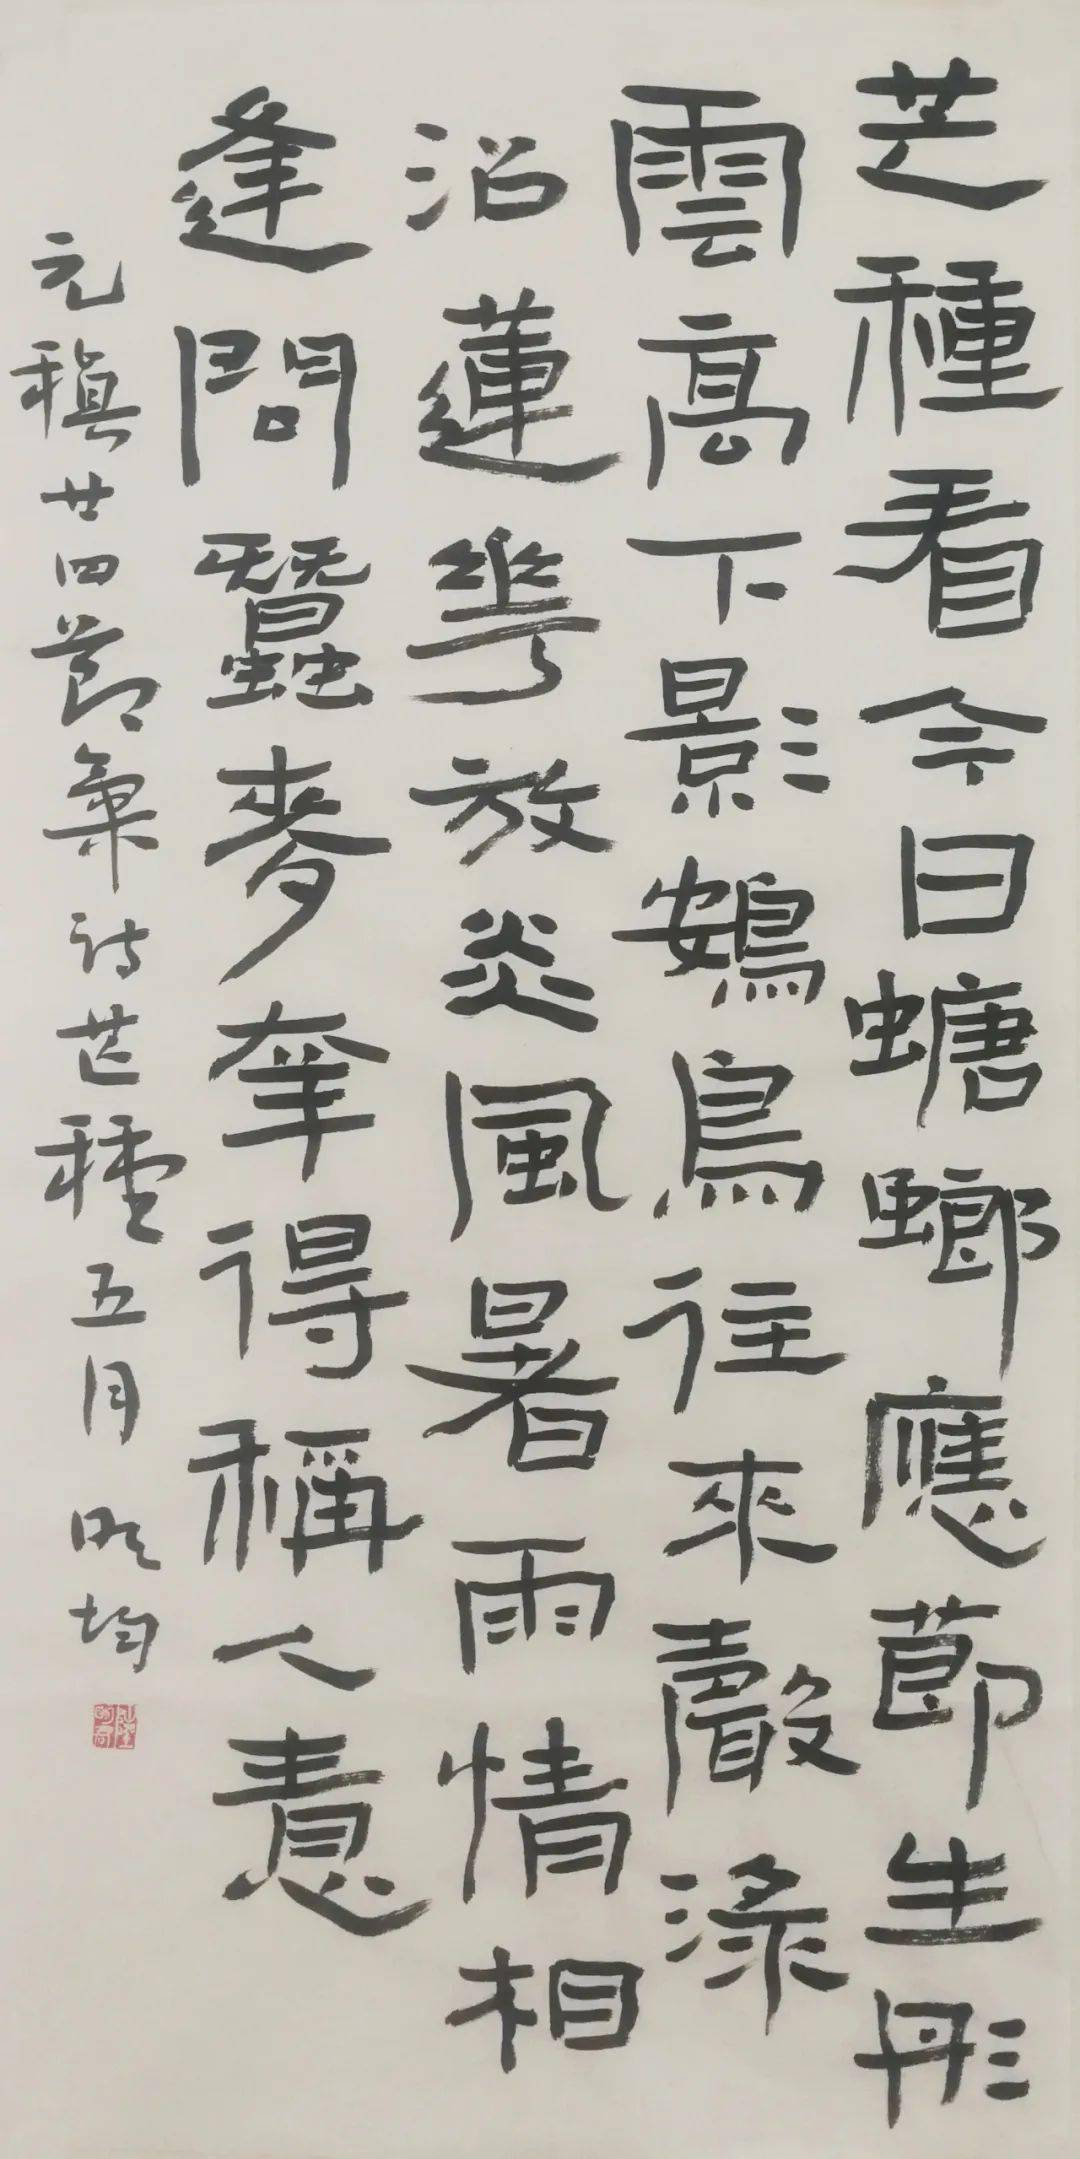 芒種看今日螗螂應節生彤
雲高下影鴳鳥往來聲淥
沼蓮華放炎風暑雨情相
逢問蠶麥幸得稱人意
元稹廿四節氣詩芒種五月明均